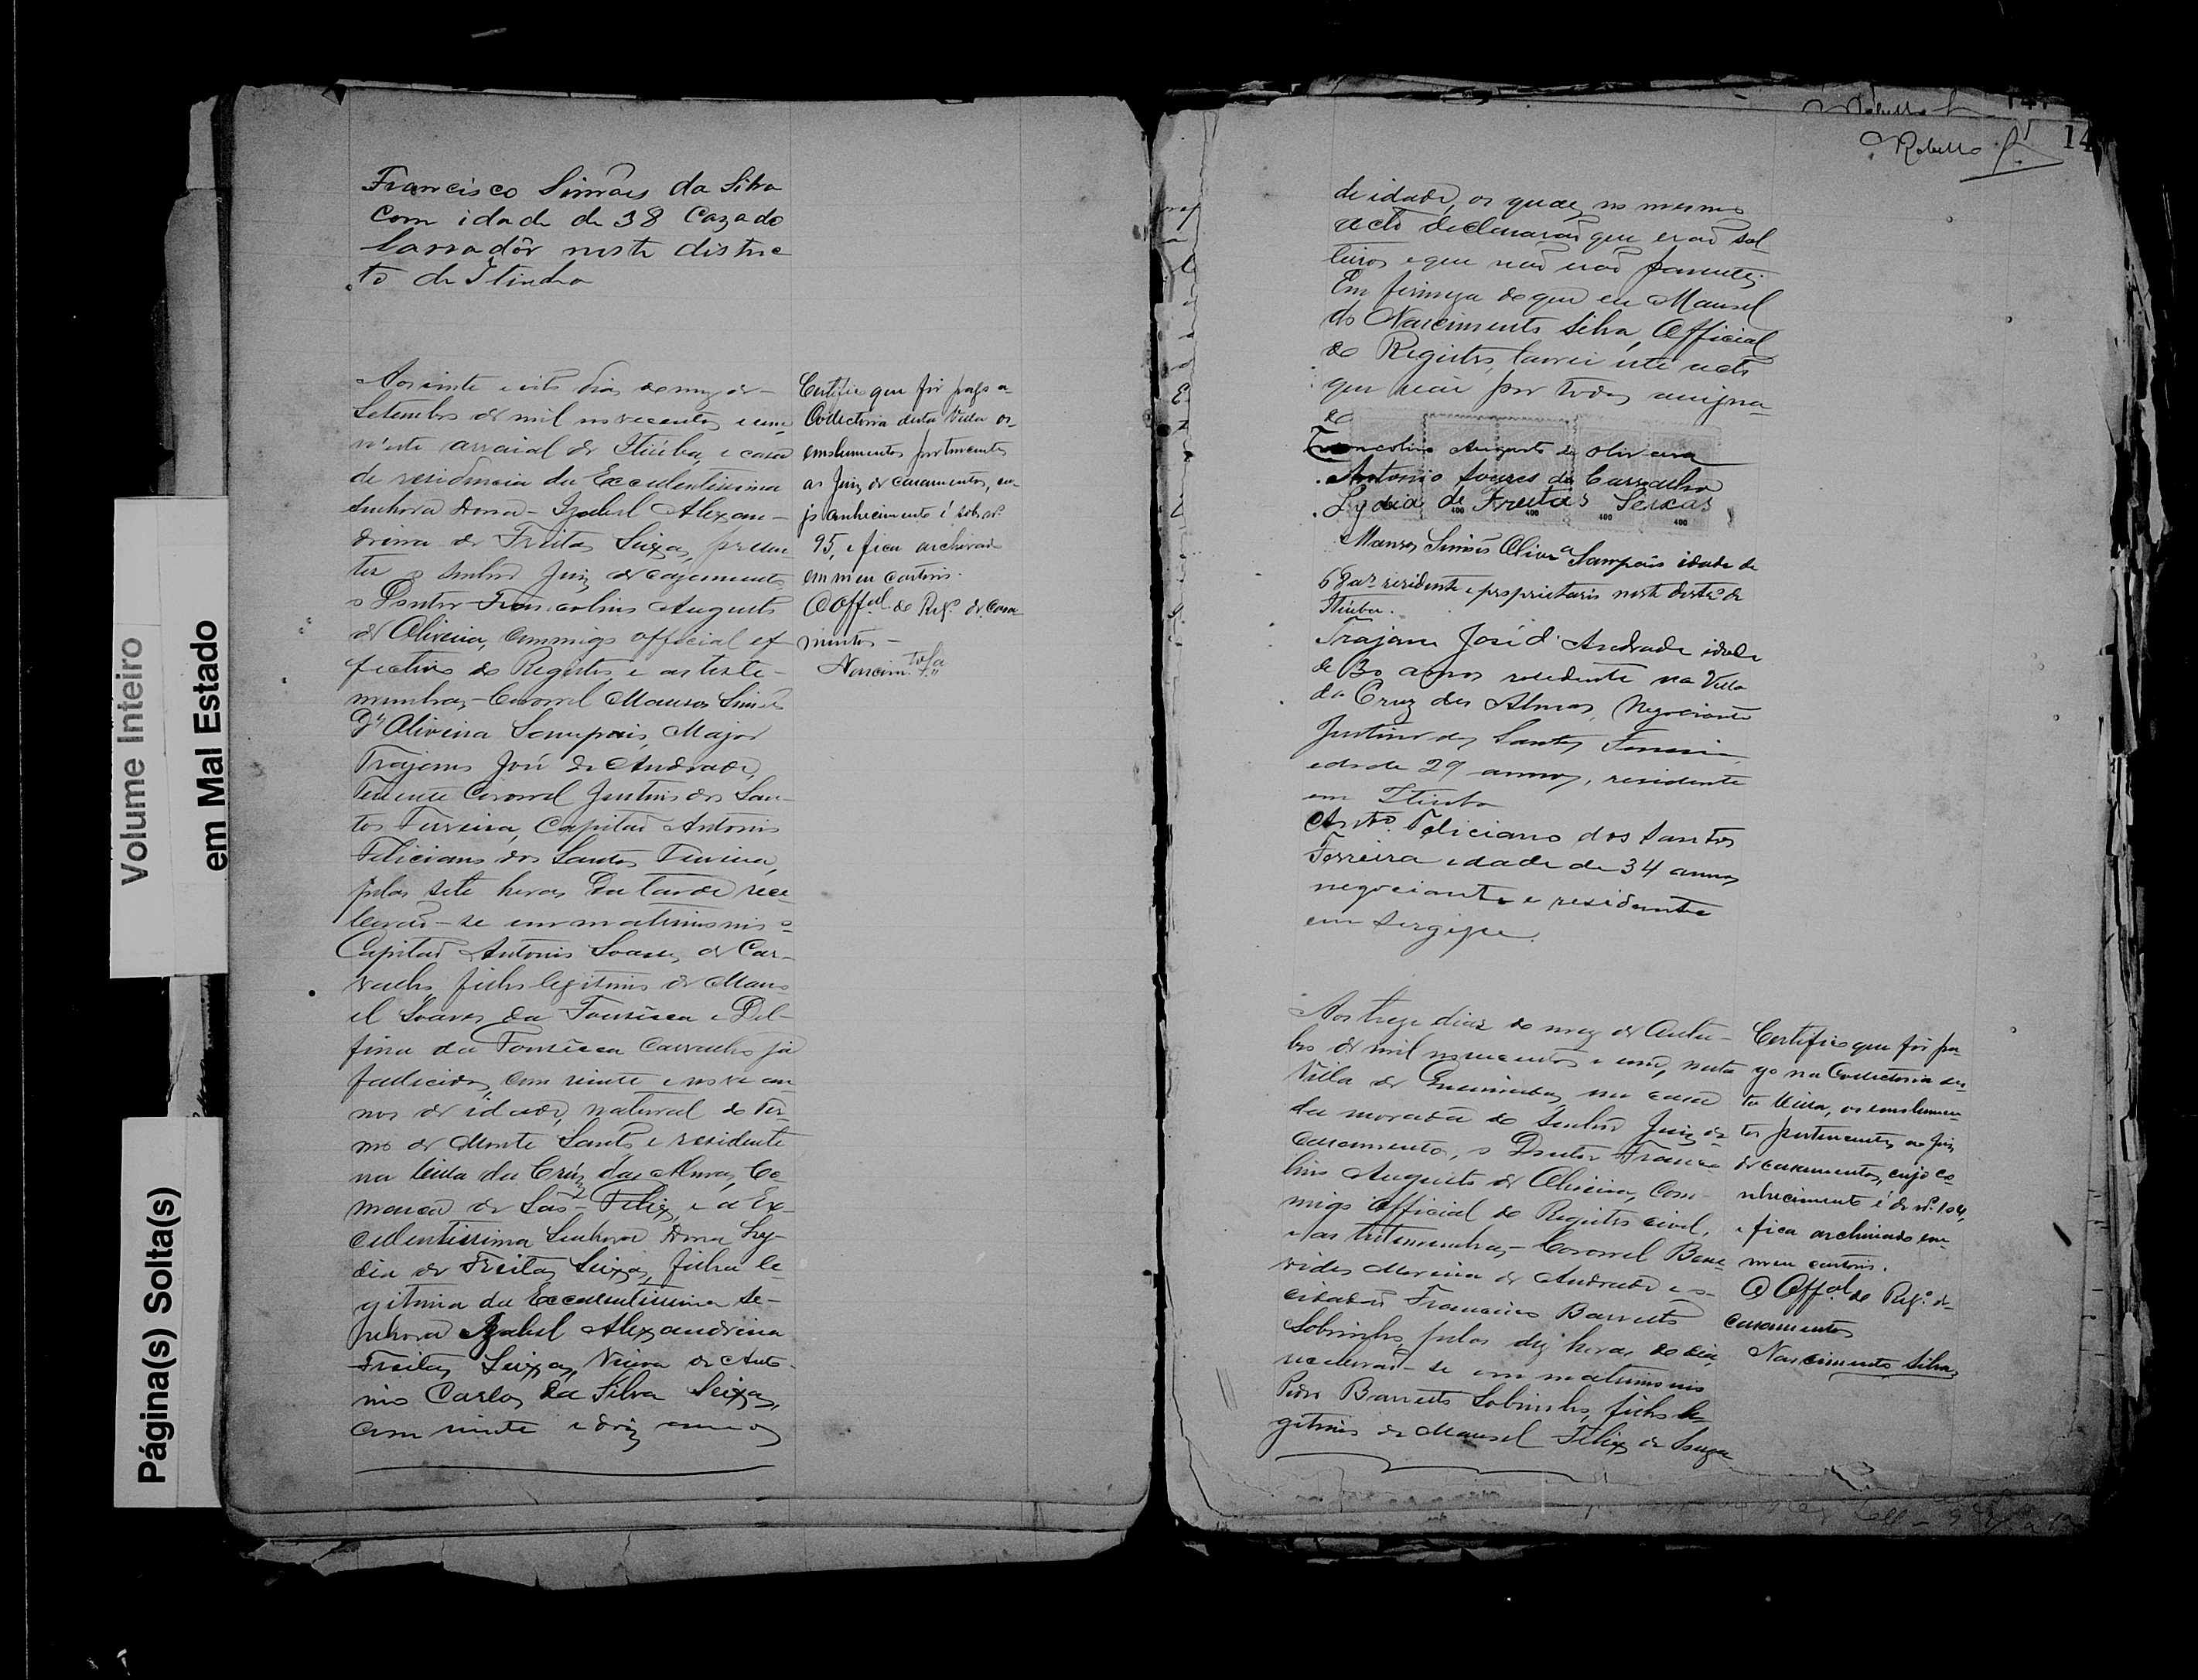 Volume Inteiro
em Mal Estado
Página(s) Solta(s)
Francisco Simões da Silva
com idade de 38 Cazado
lavradôr neste distric
to de Itiuba
Aos vinte e oito dias do mez de
Setembro de mil novecentos e um
n'este arraial de Itiúba, e casa
de residencia da Excellentissima
Senhora Dona Izabel Alexan-
drina de Freitas Seixas, presen
tes o Senhor Juiz de cazamentos
o Doutor Francolino Augusto
de Oliveira, commigo official ef
fectivo do Registro e as teste-
munhas, Coronel Manços Simões
d' Oliveira Sampaio, Major
Trajano José de Andrade,
Tenente Coronel Justino dos San-
tos Ferreira, Capitaõ Antonio
Feliciano dos Santos Ferreira,
pelas sete horas da tarde rece
beraõ-se em matrimonio o
Capitaõ Antonio Soares de Car-
valho, filho legitimo de Mano
el Soares da Fonsêca e Del-
fina da Fonsêca Carvalho já
fallecidos, com vinte e nove an
nos de idade, natural do ter-
mo de Monte Santo e residente
na Villa da Crúz das Almas, Co-
marca de Saõ-Felix, e a Ex-
cellentissima Senhora Dona Ly-
dia de Freitas Seixas, filha le-
gitima da Excellentissima Se-
nhora Izabel Alexandrina
Freitas Seixas, Viuva de Anto-
nio Carlos da Silva Seixas,
com vinte e dois annos
Certifico que foi pago a
Collectoria desta Villa os
emolumentos pertencentes
ao Juiz de casamentos, cu-
jo conhecimento é sob nº
95, e fica archivado
em meu cartorio.
O Offal do Regº de Casa
mentos
Nascimto Sa
Rebello
14
de idade, os quaes no mesmo
acto declararaõ que eraõ sol
teiros e que naõ eraõ parentes.
Em firmeza do que eu Manoel
do Nascimento Silva, Official
do Registro, lavrei este acto
que vai por todos assigna-
do
Francolino Augusto de Oliveira
Antonio Soares de Carvalho
Lydia de Freitas Seixas
400 400 400 400
Manços Simões Olivra Sampaio idade de
68 as residente e proprietario neste destro de
Itiuba.
Trajano José d'Andrade idade
de 30 annos residente na Villa
da Cruz das Almas, Negociante
Justino dos Santos Ferreira
edade 29 annos, residente
em Itiuba
Anto. Feliciano dos Santos
Ferreira edade de 34 annos
negociante e residente
em Sergipe.
Aos treze dias do mez de Outu-
bro de mil novecentos e um, nesta
Villa de Queimadas, na casa
da morada do Senhor Juiz de
Casamentos, o Doutor Franco
lino Augusto de Oliveira, com-
migo Official do Registro civil,
e as testemunhas, Coronel Bene
vides Moreira de Andrade e o
cidadaõ Francisco Barretto
Sobrinho, pelas dez horas do dia,
receberaõ-se em matrimonio
Pedro Barretto Sobrinho, filho le-
gitimo de Manoel Felix de Souza
Certifico que foi pa
go na Collectoria des
ta Villa, os emolumen
tos pertencentes ao Juiz
de casamentos, cujo co-
nhecimento é de nº. 104,
e fica archivado em
meu cartorio.
O Offal do Regº. de
casamentos
Nascimento Silva